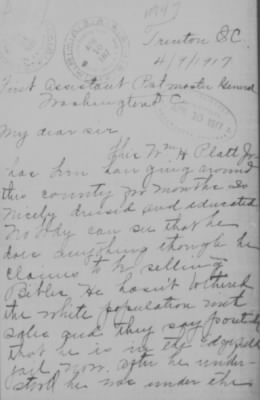 Trenton S.C.
4/9/1917
First Assistant Postmaster General
Washington D.C.
My dear sir
This Wm H Platt Jr
has been hanging around
this county for months so
nicely dressed and educated
Nobody can see that he
does anything though he
claims to be selling
Bibles. He hasn't bothered
the white population with
sales and they say positively
that he is in the Edgefield
jail now. after he under-
stood he was under the